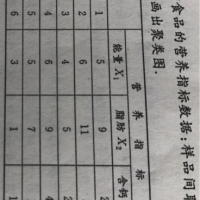 食品的营养指标数据:样品间
画出聚类图.
营养指标
能量 X₁ 脂肪 X₂ 含钙
1 5 9
2 6 11
3 4 5
4 6 9
5 5 7
6 3 1